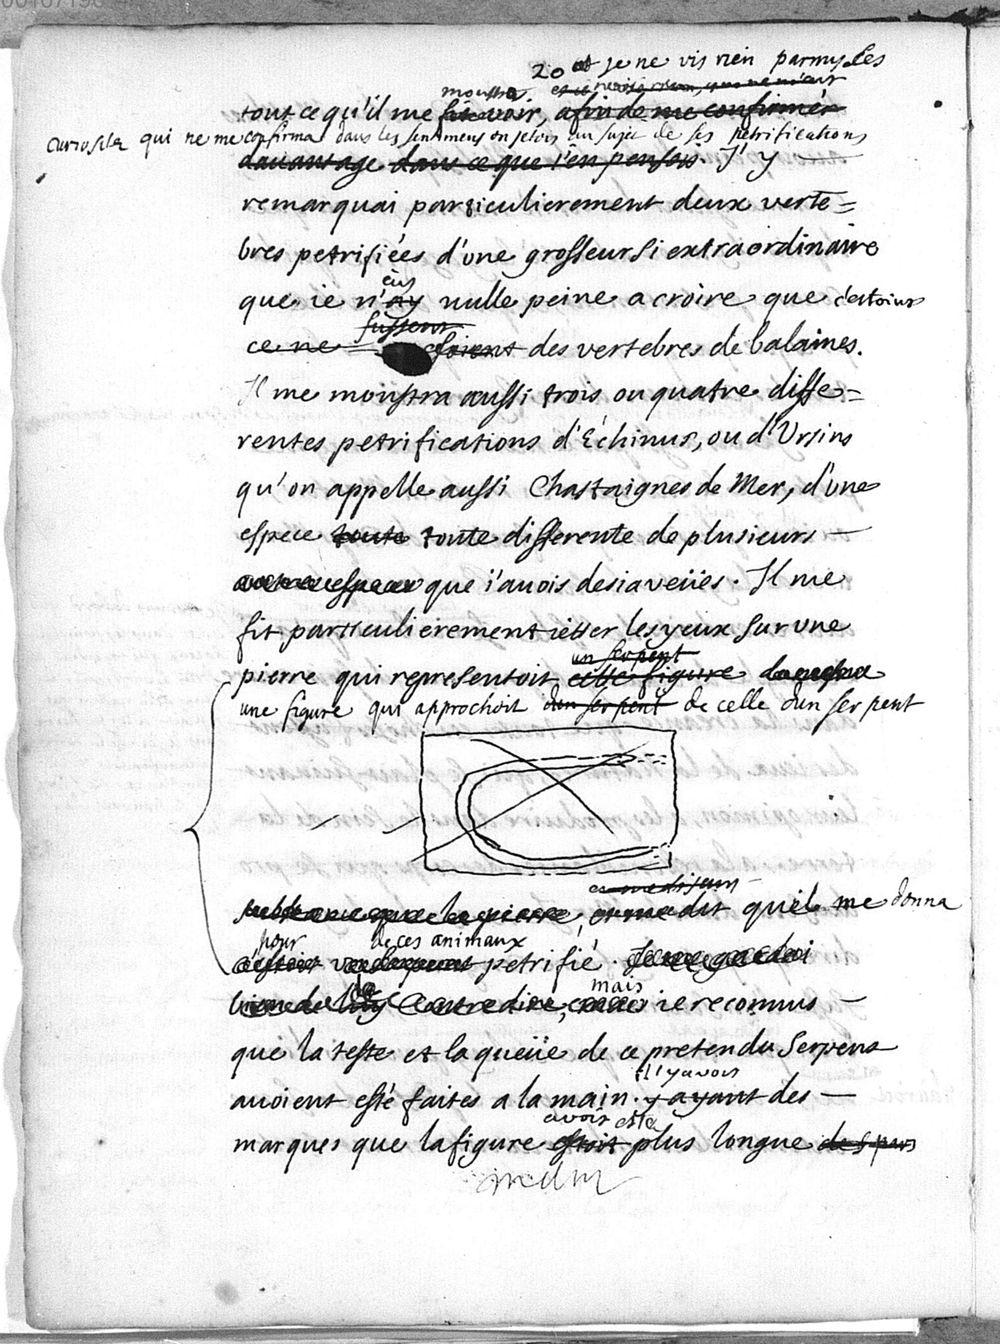 20 et je ne vis rien parmy Les
monstra
tout ce qu'il me fit voir, afin de me confirmer
curiosités qui ne me confirma dans les sentimens ou j'etois au sujet de ses petrifications
dauantage dans ce que i'en pensois. J'y
remarquai particulierement deux verte=
bres petrifiées d'vne grosseur si extraordinaire
eûs
que ie n'ay nulle peine a croire que c'estoint
fussent
ce ne des vertebres de balaines.
Il me moustra aussi trois ou quatre diffe=
rentes petrifications d'Echinus, ou d'Ursins
qu'on appelle aussi Chastaignes de Mer, d'vne
espece toute toute differente de plusieurs
que i'auois desia veües. Il me
fit particulierement ietter les yeux sur vne
un serpent
pierre qui representoit cette figure
une figure qui approchoit d'un serpent de celle d'un serpent
dit qu'il me donna
pour de ces animaux
petrifié.
mais
contredire, ie reconnus
que la teste et la queüe de ce pretendu Serpens
il y avoit
auoient esté faites a la main. y ayant des
avoir esté
marques que la figure estoit plus longue